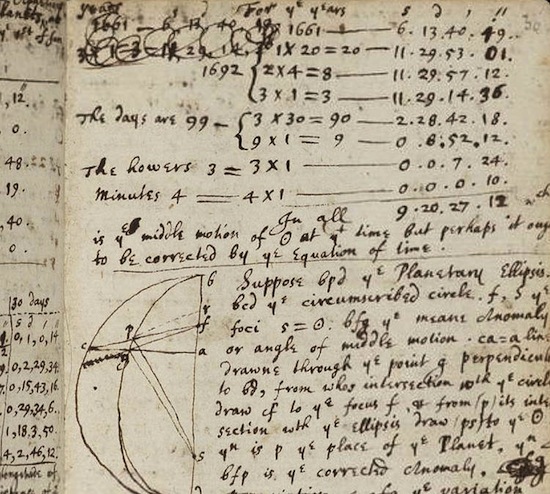 years For yᵉ yeares s d ′ ″
1661 — 6 13 40 19 1661 — 6.13.40.49.
1 X 20 = 20 — 11.29.53.01.
1692 2 X 4 = 8 — 11.29.57.12.
3 X 1 = 3 — 11.29.14.36.
The days are 99 — 3 X 30 = 90 — 2.28.42.18.
9 X 1 = 9 — 0.8.52.12.
The howers 3 = 3 X 1 — 0.0.7.24.
Minutes 4 = 4 X 1 — 0.0.0.10.
In all 9.20.27.12 wᶜʰ
is yᵉ middle motion of ☉ at yᵗ time but perhaps it oug
to be corrected by yᵉ Equation of time.
Suppose bpd yᵉ Planetary Ellipsis.
bcd yᵉ circumscribed circle. f, s yᵉ
foci s = ☉. bfg yᵉ meane Anomaly
or angle of middle motion. ca = a line
drawne through yᵉ point g perpendicul
to bd, from whos intersection wth yᵉ circle
draw cf to yᵉ focus f & from /p/ its inter
section wth yᵉ ellipsis draw /ps/ to yᵉ ☉
yⁿ is p yᵉ place of yᵉ Planet, yⁿ
bfp is yᵉ corrected Anomaly.
of yᵉ variation
b
r
f
p
c
a
g
s
d
,12.
0.
48.
19.
,40.
0.
30 days
s d ′
0,1,0,14
0,2,29,34
0,15,43,16
0,29,34,6.
1,18,3,50.
4,2,46,12.